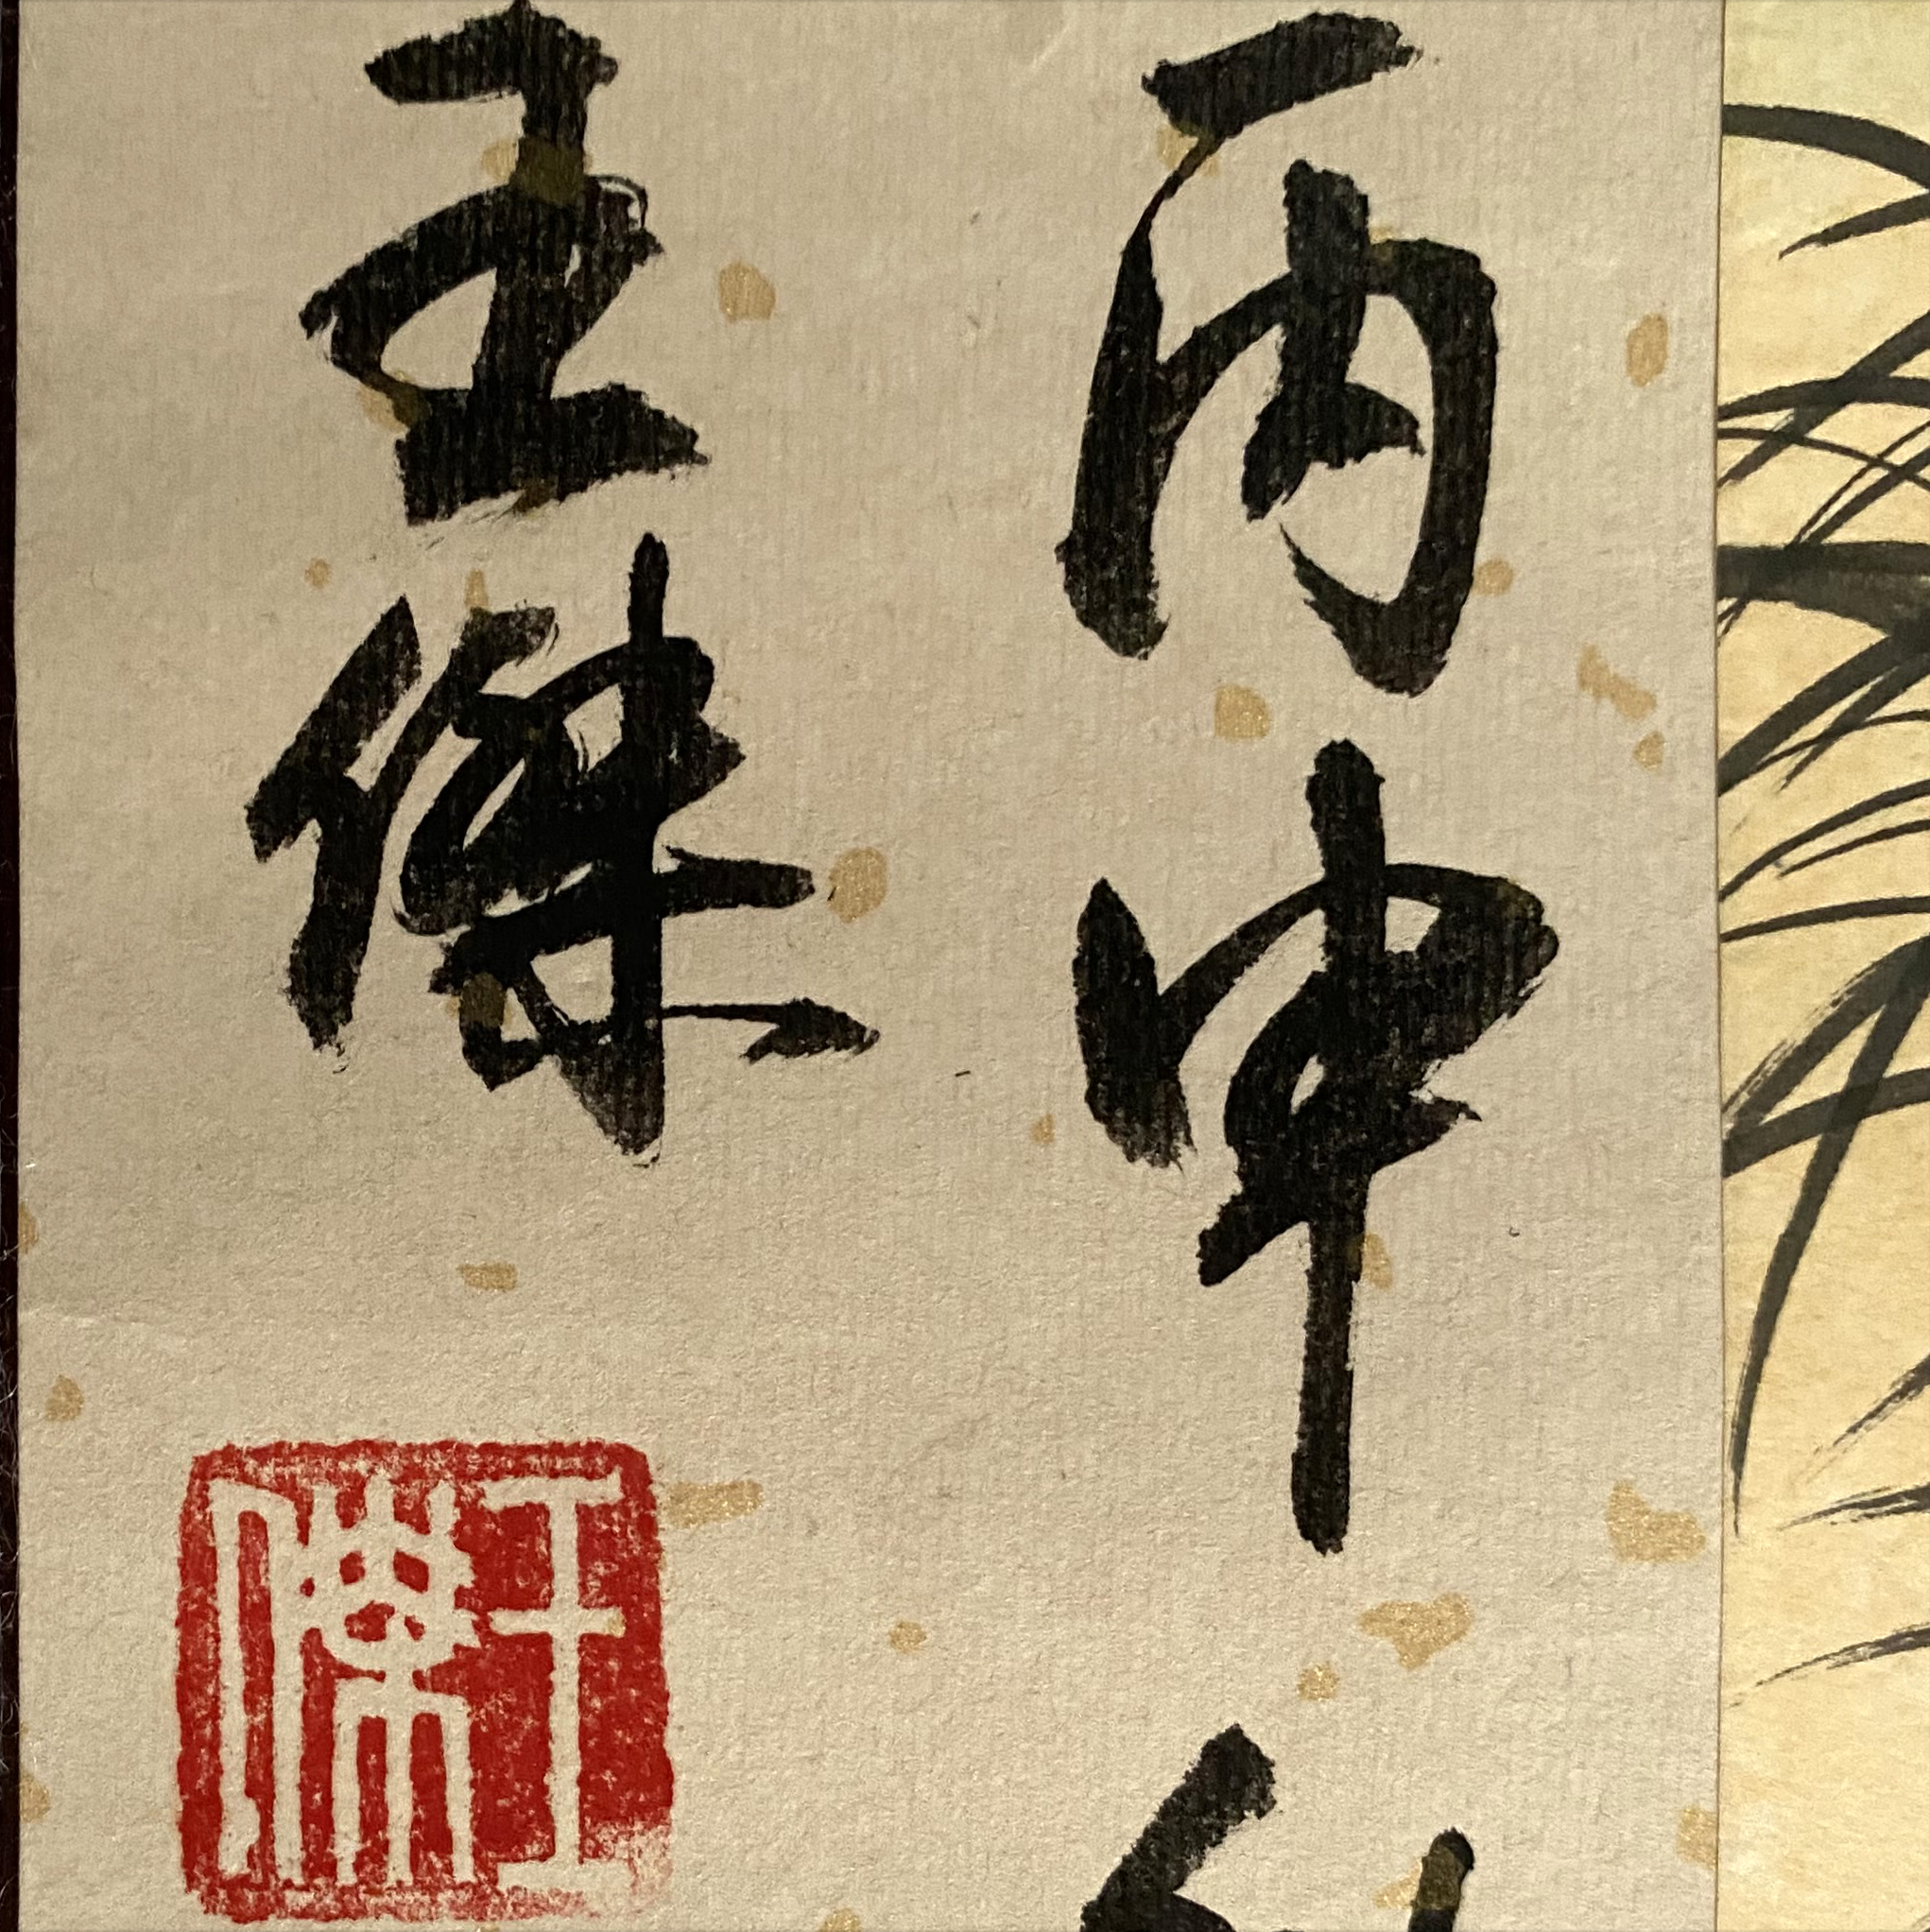 丙申
王傑
王傑